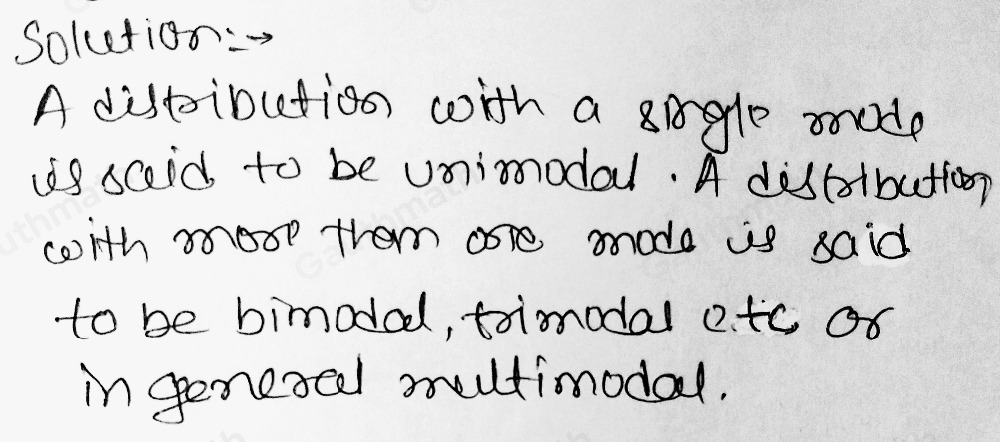 Solution:→
A distribution with a single mode
is said to be unimodal. A distribution
with more than one mode is said
to be bimodal, trimodal e.tc or
in general multimodal.